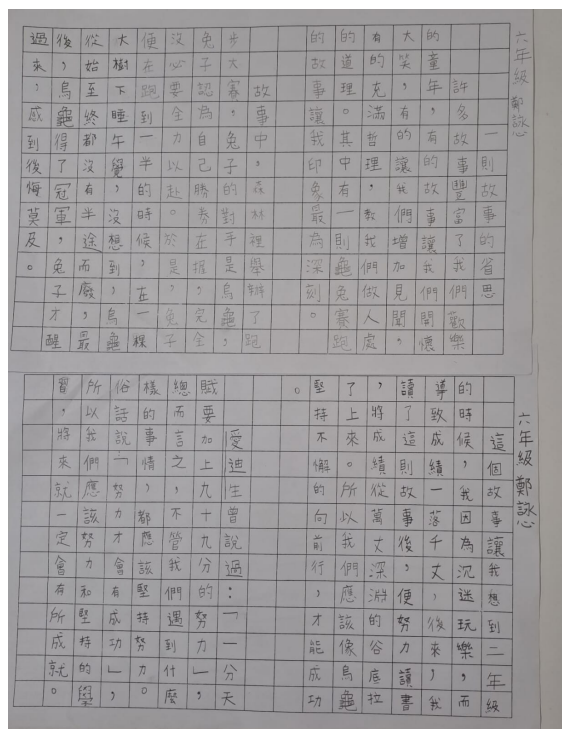 六年級 鄭詠心
一則故事的省思
許多故事豐富了我們歡樂
的童年,有的故事讓我們開懷
大笑,有的讓我們增加見聞,
有的充滿哲理,教我們做人處
的道理。其中有一則龜兔賽跑
的故事讓我印象最為深刻。
故事中,森林裡舉辦了跑
步大賽,兔子的對手是烏龜,
免子認為自己勝券在握,完全
沒必要全力以赴。於是,兔子
便在跑到一半的時候,在一棵
大樹下睡午覺,沒想到,烏龜
從始至終都沒有半途而廢,最
後,烏龜得了冠軍,兔子才醒
過來,感到後悔莫及。
六年級 鄭詠心
這個故事讓我想到二年級
的時候,我因為沉迷玩樂,而
導致成績一落千丈,後來,我
讀了這則故事後,便努力讀書
,將成績從萬丈深淵的谷底拉
了上來。所以我們應該像烏龜
堅持不懈的向前行,才能成功
。
愛迪生曾說過:「一分天
賦要加上九十九分的努力」,
總而言之,不管我們遇到什麼
樣的事情,都應該堅持努力。
俗話說「努力才會有成功」,
所以我們應該努力和堅持的學
習,將來就一定會有所成就。